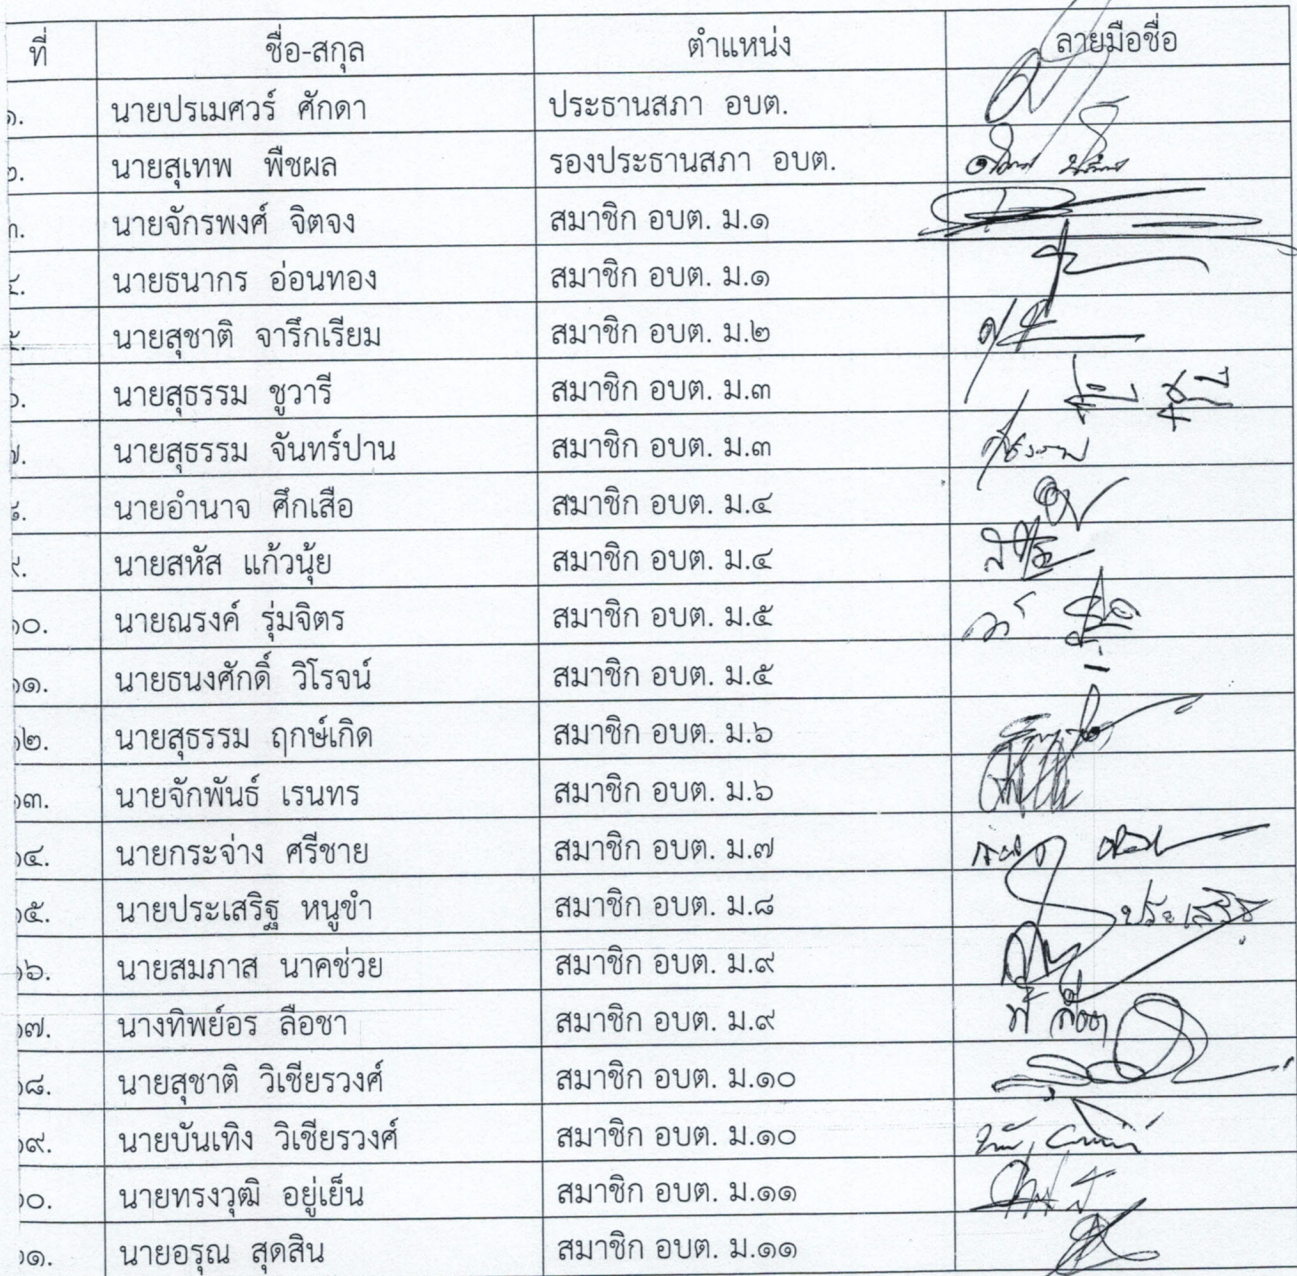 ที่ ชื่อ-สกุล ตำแหน่ง ลายมือชื่อ
๑. นายปรเมศวร์ ศักดา ประธานสภา อบต.
๒. นายสุเทพ พืชผล รองประธานสภา อบต.
๓. นายจักรพงศ์ จิตจง สมาชิก อบต. ม.๑
๔. นายธนากร อ่อนทอง สมาชิก อบต. ม.๑
๕. นายสุชาติ จารึกเรียม สมาชิก อบต. ม.๒
๖. นายสุธรรม ชูวารี สมาชิก อบต. ม.๓
๗. นายสุธรรม จันทร์ปาน สมาชิก อบต. ม.๓
๘. นายอำนาจ ศึกเสือ สมาชิก อบต. ม.๔
๙. นายสหัส แก้วนุ้ย สมาชิก อบต. ม.๔
๑๐. นายณรงค์ รุ่มจิตร สมาชิก อบต. ม.๕
๑๑. นายธนงศักดิ์ วิโรจน์ สมาชิก อบต. ม.๕
๑๒. นายสุธรรม ฤกษ์เกิด สมาชิก อบต. ม.๖
๑๓. นายจักพันธ์ เรนทร สมาชิก อบต. ม.๖
๑๔. นายกระจ่าง ศรีชาย สมาชิก อบต. ม.๗
๑๕. นายประเสริฐ หนูขำ สมาชิก อบต. ม.๘ ประเสริฐ
๑๖. นายสมภาส นาคช่วย สมาชิก อบต. ม.๙
๑๗. นางทิพย์อร ลือชา สมาชิก อบต. ม.๙
๑๘. นายสุชาติ วิเชียรวงศ์ สมาชิก อบต. ม.๑๐
๑๙. นายบันเทิง วิเชียรวงศ์ สมาชิก อบต. ม.๑๐
๒๐. นายทรงวุฒิ อยู่เย็น สมาชิก อบต. ม.๑๑
๒๑. นายอรุณ สุดสิน สมาชิก อบต. ม.๑๑